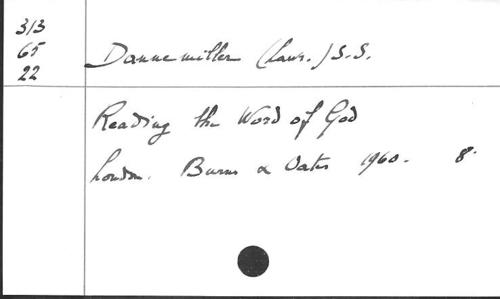 313
65
22
Dannemiller (Lawr.) S.S.
Reading the Word of God
London. Burns & Oates 1960. 8º